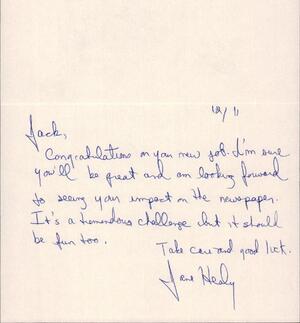 12/11
Jack,
Congratulations on your new job. I'm sure
you'll be great and am looking forward
to seeing your impact on the newspaper.
It's a tremendous challenge but it should
be fun too.
Take care and good luck.
Jane Healy